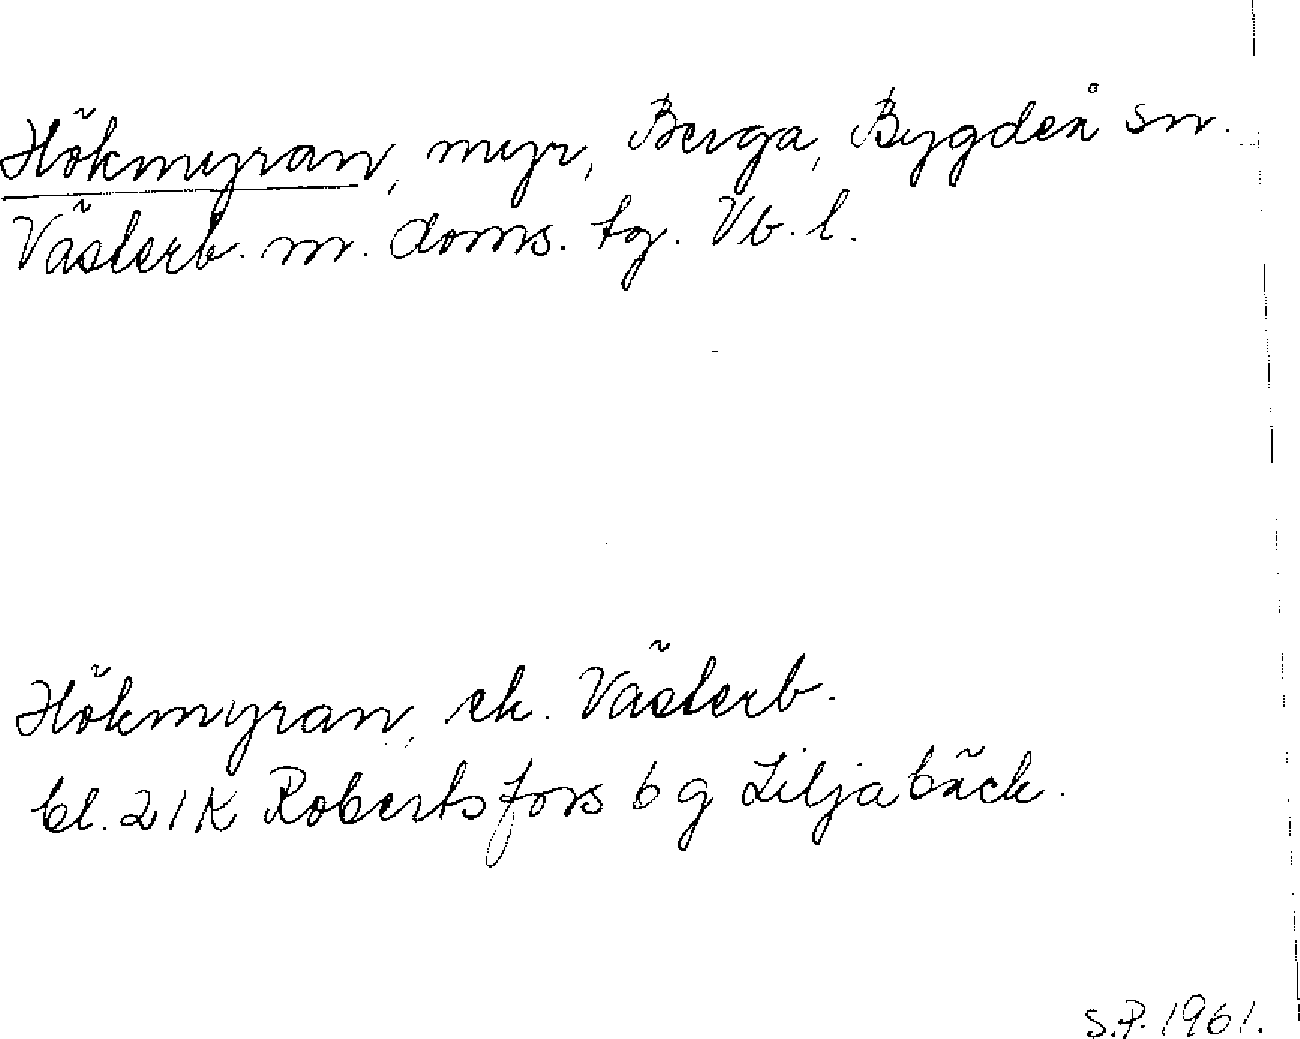 Hökmyran, myr, Berga, Bygdeå sn.
Västerb. m. doms. tg. Vb. l.
Hökmyran, ek. Västerb.
bl. 21K Robertsfors 6 g Liljabäck.
S.P. 1961.